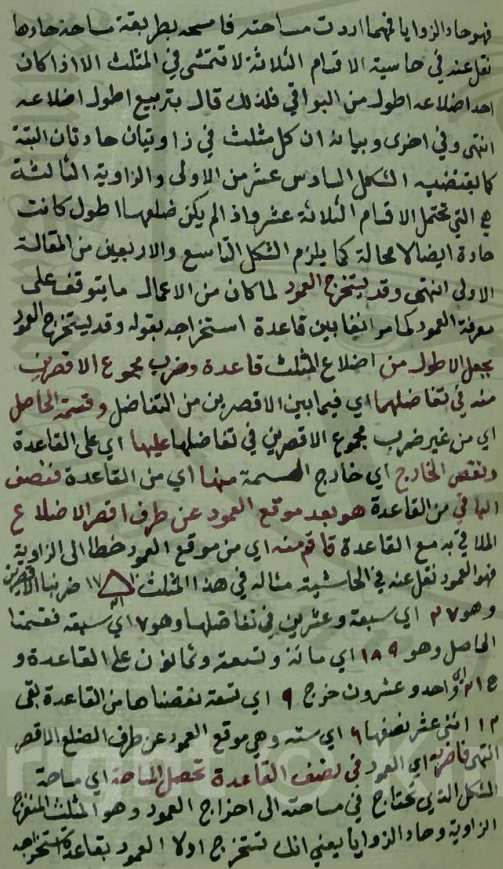 فهو حاد الزوايا فمهما اردت مساحته فامسحه بطريقة مساحة حادها
نقل عنه في حاشية الاقسام الثلاثة لا تتمشى في المثلث الا اذا كان
احد اضلاعه اطول من البواقي فلذلك قال بتربيع اطول اضلاعه
انتهى وفي اخرى وبيانه ان كل مثلث في زاويتان حادتان البتة
كما يقتضيه الشكل السادس عشر من الاولى والزاوية الثالثة
هي التي تحتمل الاقسام الثلاثة عشر واذ الم يكن ضلعها اطول كانت
حادة ايضا لا محالة كما يلزم الشكل التاسع والاربعين من المقالة
الاولى انتهى وقد يستخرج العمود لما كان من الاعمال ما يتوقف على
معرفة العمود كما مر انفا بين قاعدة استخراجه بقوله وقد يستخرج العمود
بجعل الاطول من اضلاع المثلث قاعدة وضرب مجموع الاقصرين
منه في تفاضلهما اي فيما بين الاقصرين من التفاضل وقسمة الحاصل
اي من غير ضرب مجموع الاقصرين في تفاضلها عليها اي على القاعدة
ونقص الخارج اي خارج القسمة منها اي من القاعدة فنصف
الباقي من القاعدة هو بعد موقع العمود عن طرف اقصر الاضلاع
الملاقي به مع القاعدة فاقم منه اي من موقع العمود خطا الى الزاوية
فهو العمود نقل عنه في الحاشية مثاله في هذا المثلث ١٧ ضربنا الاقصرين
وهو ٢٧ اي سبعة وعشرين في تفاضلها وهو ٧ اي سبعة فقسمنا
الحاصل وهو ١٨٩ اي مائة وتسعة وثمانون على القاعدة و
٢١ اي واحد وعشرون خرج ٩ اي تسعة نقصناها من القاعدة بقى
١٢ اثنى عشر نصفها ٦ اي ستة وهي موقع العمود عن طرف الضلع الاقصر
انتهى فاضربه اي العمود في نصف القاعدة تحصل المساحة اي مساحة
الشكل الذي تحتاج في مساحته الى اخراج العمود وهو المثلث المنفرج
الزاوية وحاد الزوايا يعني انك تستخرج اولا العمود بقاعدة استخراجه